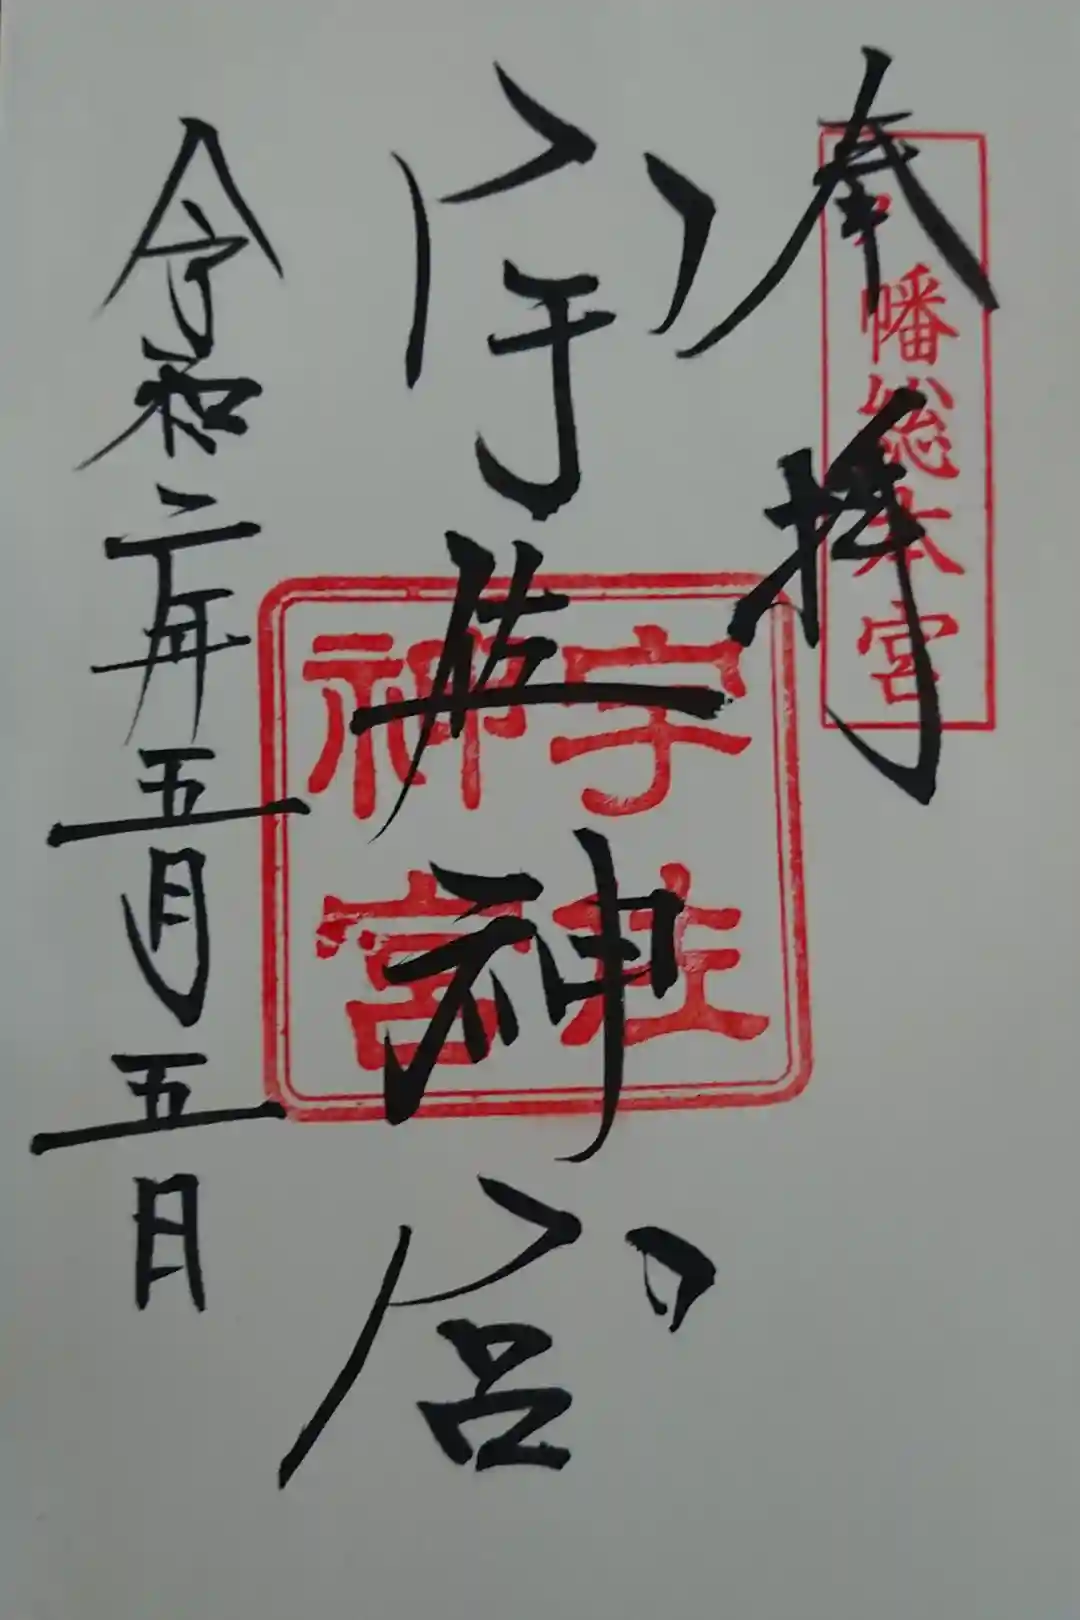 奉拝
八幡総本宮
宇佐神宮
宇佐神宮
令和二年五月五日